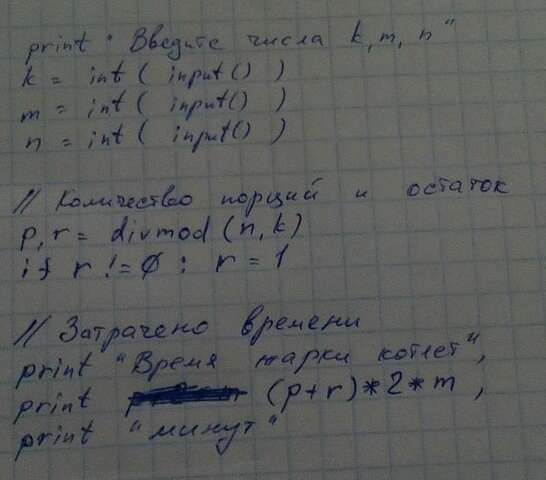 print "Введите числа k, m, n"
k = int ( input() )
m = int ( input() )
n = int ( input() )
// Количество порций и остаток
p, r = divmod (n, k)
if r != 0 : r = 1
// Затрачено времени
print "Время жарки котлет",
print (p+r)*2*m ,
print "минут"